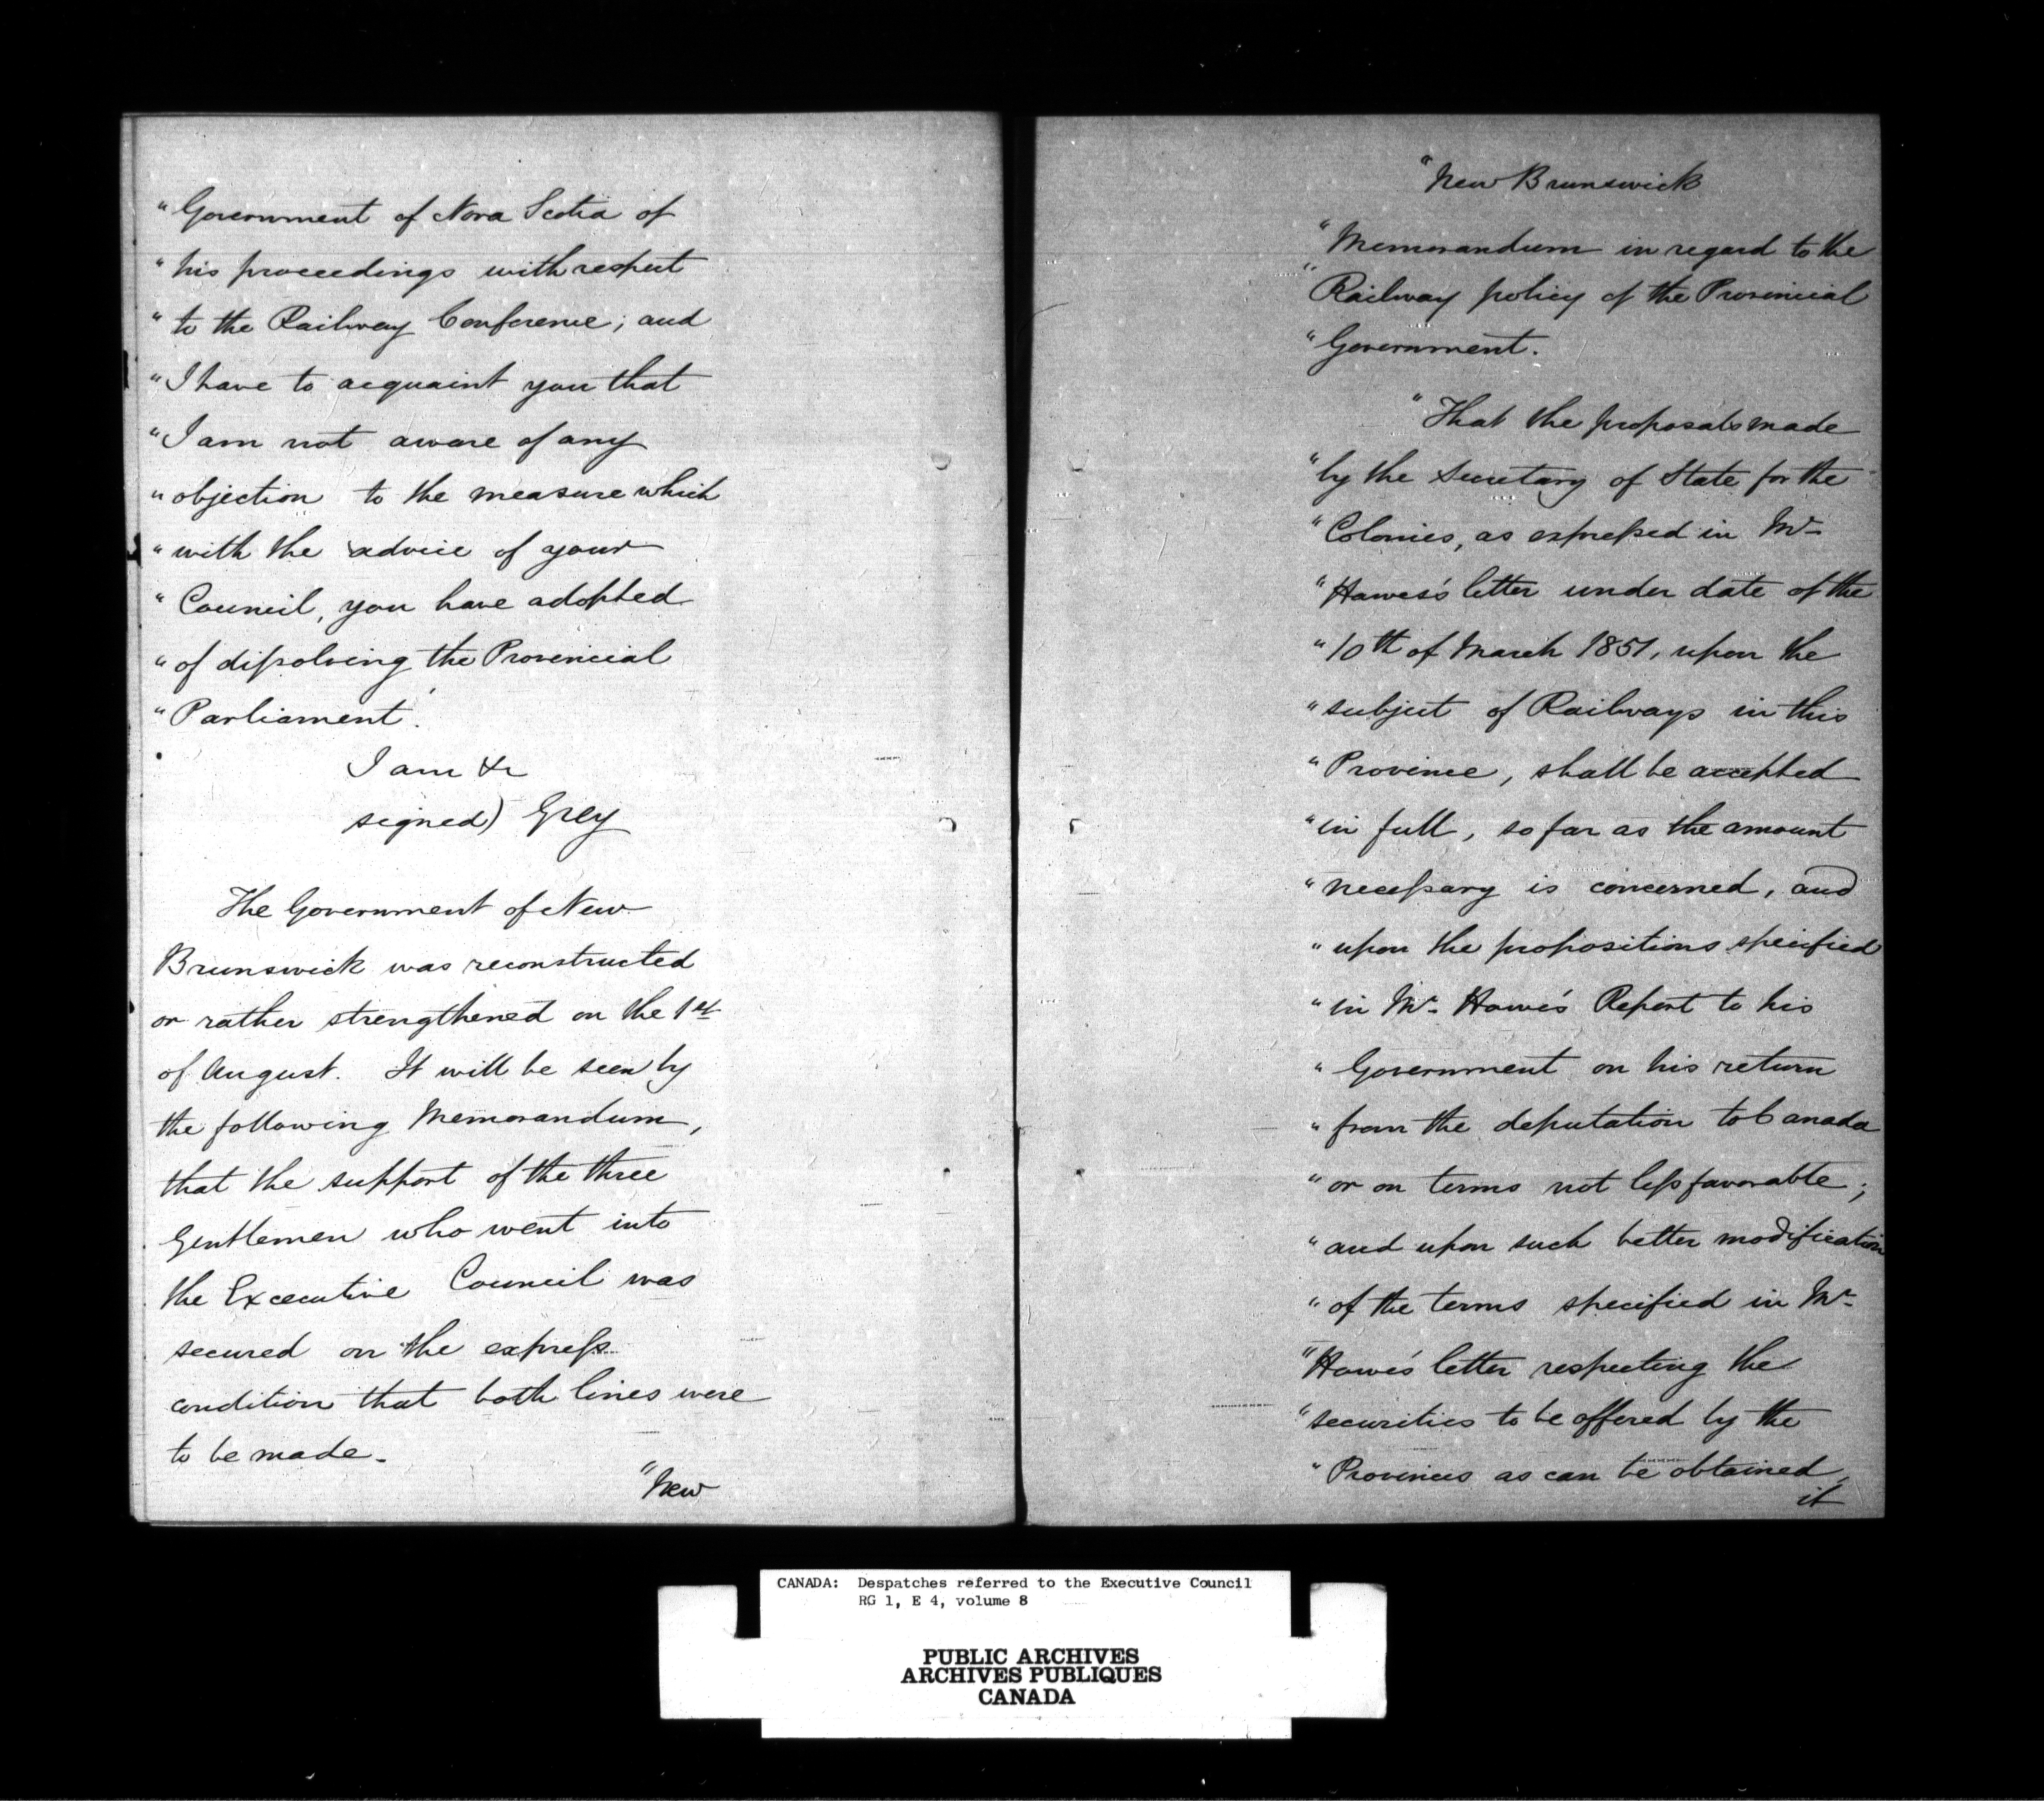 "Government of Nova Scotia of
"his proceedings with respect
"to the Railway Conference; and
"I have to acquaint you that
"I am not aware of any
"objection to the measure which
"with the advice of your
"Council, you have adopted
"of dissolving the Provincial
"Parliament.
I am &c
signed) Grey
The Government of New
Brunswick was reconstructed
or rather strengthened on the 1st
of August. It will be seen by
the following Memorandum,
that the support of the three
Gentlemen who went into
the Excecutive Council was
secured on the express
condition that both lines were
to be made.
"New
"New Brunswick
"Memorandum in regard to the
"Railway policy of the Provincial
"Government.
"That the proposals made
"by the Secretary of State for the
"Colonies, as expressed in Mr
"Hawes's letter under date of the
"10th of March 1851, upon the
"subject of Railways in this
"Province, shall be accepted
"in full, so far as the amount
"necessary is concerned, and
"upon the propositions specified
"in Mr Howe's Report to his
"Government on his return
"from the deputation to Canada
"or on terms not less favorable;
"and upon such better modification
"of the terms specified in Mr
"Howe's letter respecting the
"securities to be offered by the
"Provinces as can be obtained,
it
CANADA: Despatches referred to the Executive Council
RG 1, E 4, volume 8
PUBLIC ARCHIVES
ARCHIVES PUBLIQUES
CANADA